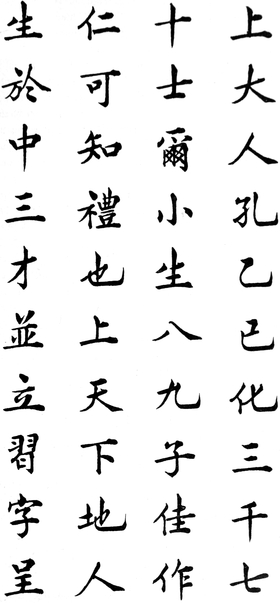 上大人孔乙己化三千七
十士爾小生八九子佳作
仁可知禮也上天下地人
生於中三才並立習字呈